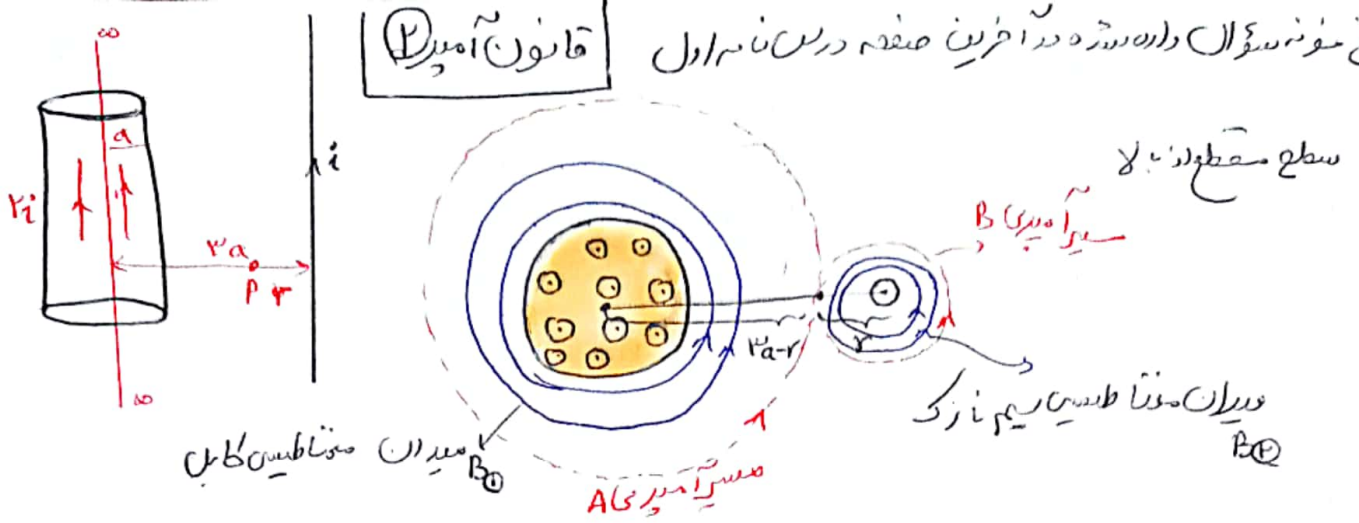 نمونه سؤال داده شده در آخرین صفحه درس نامه اول
قانون آمپر ۲
سطح مقطع از بالا
∞
a
۲i
i
۳a
P r
∞
مسیر آمپری B
۳a-r
r
میدان مغناطیسی سیم نازک
B②
میدان مغناطیسی کابل
B①
مسیر آمپری A